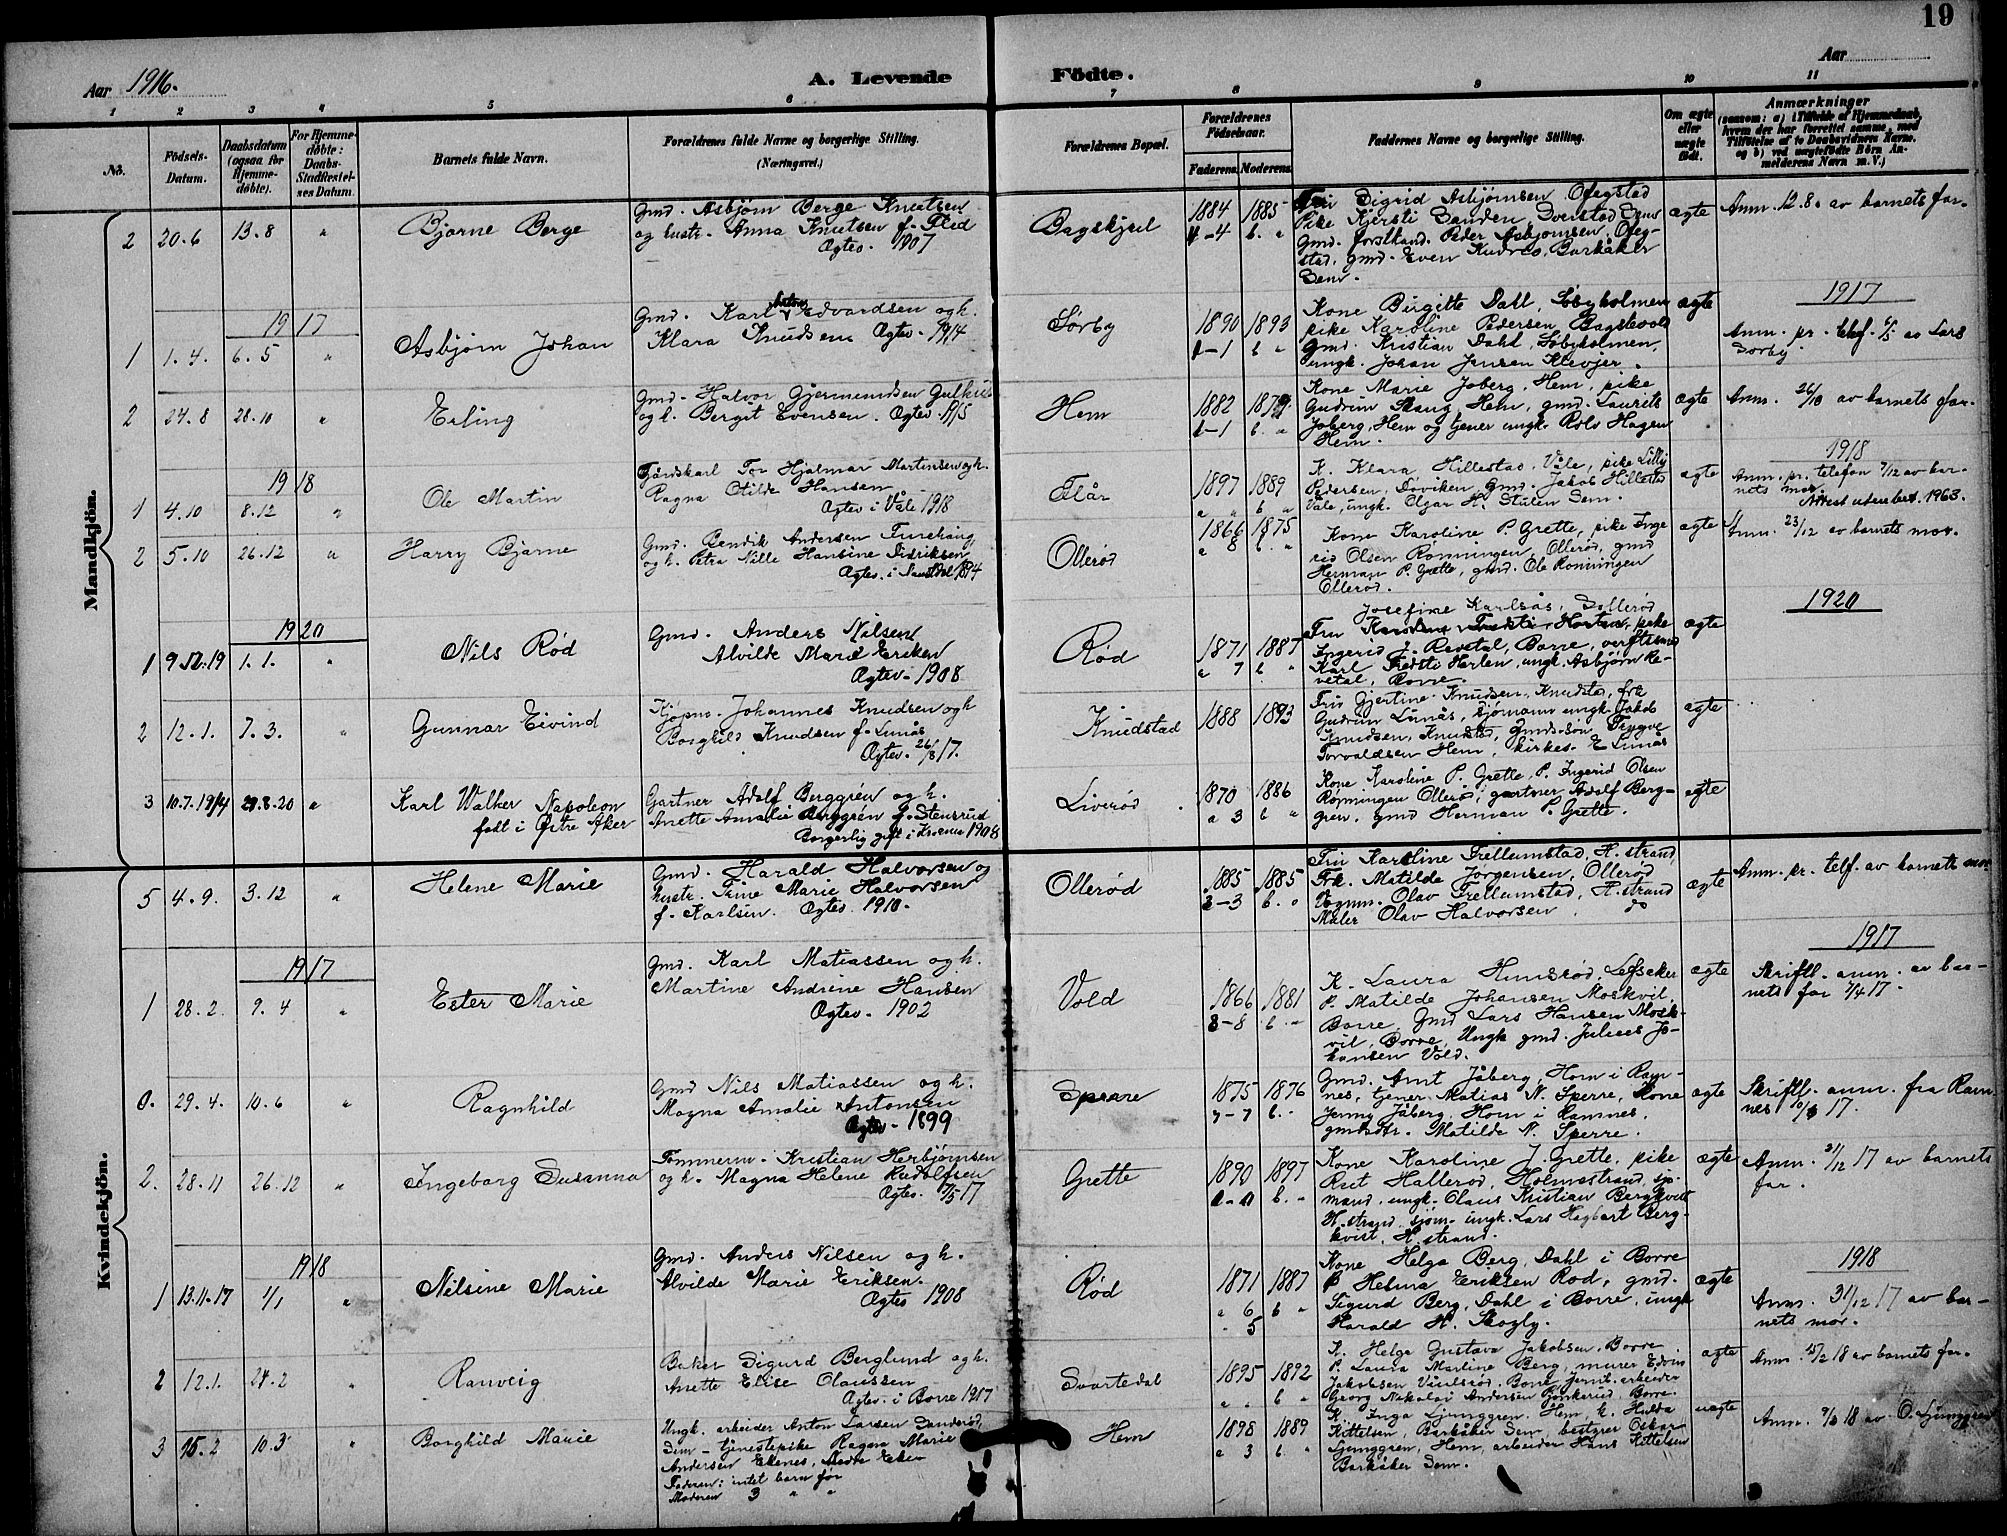 19
Aar 1916.
A. Levende
Födte.
Aar
1 2 3 4 5 6 7 8 9 10 11
No.
Födsels-Datum.
Daabsdatum (ogsaa for Hjemmedöbte).
For Hjemmedöbte: Daabs-Stadfestelses Datum.
Barnets fulde Navn.
Forældrenes fulde Navne og borgerlige Stilling. (Næringsvei.)
Forældrenes Bopæl.
Forældrenes Födselsaar.
Faderens. Moderens.
Faddernes Navne og borgerlige Stilling.
Om ægte eller uægte födt.
Anmærkninger
(saasom: a) i Tilfælde af Hjemmedaab, hvem der har forrettet samme, med Tilföielse af to Daabsvidners Navne, og b) ved uægtefödte Börn Anmelderens Navn m. V.)
Mandkjön.
2 20.6 13.8 " Bjarne Berge
Gmd. Asbjørn Berge Knutsen
og hustr. Anna Knutsen f. Flid
Ægtev. 1907
Bagskjæl
1884 1885
4-4 b. "
Fru Sigrid Asbjørnsen
Pike Kjersti Sanden
Gmd. Peder Asbjørnsen
stad, gmd. Even Barkåker
Sem.
ægte
Anm. 12.8. av barnets far.
1917
1 1.4. 6.5 " Asbjørn Johan
Gmd. Karl Anton Edvardsen og h.
Klara Knudsen Ægtev. 1914
Sørby
1890 1893
1-1 b "
Kone Birgitte Dahl, Løbyholmen
pike Karoline Pedersen
gmd. Kristian Dahl, Løbyholmen,
ungk. Johan Jensen Klevjer.
ægte
1917
Anm. pr. telef. 4/5 av Lars
Sørby.
2 24.8 28.10 " Erling
Gmd. Halvor Gjermundsen
og h. Bergit Evensen. Ægtev. 1915
Hem
1882 1879
1-1 b. "
Kone Marie Joberg, Hem, pike
Gudrun Skaug, Hem, gmd. Laurits
Joberg, Hem og tjener ungk. Rolv Hagen
Hem.
ægte
Anm. 26/10 av barnets far.
1918
1 4.10 8.12 " Ole Martin
Gårdskarl Tor Hjalmar Martinsen og h.
Ragna Otilde Hansen
Ægtev. i Våle 1918
Flår
1897 1889
" " b "
K. Klara Hillestad, Våle, pike Lilly
Pedersen, gmd. Jakob Hillestad
Våle, ungk. Olgar H. Stulen Sem.
ægte
1918
Anm. pr. telefon 7/12 av barnets mor.
Attest utenbet. 1963.
2 5.10 26.12 " Harry Bjarne
Gmd. Bendik Andersen
og h. Petra Nille Hansine Didriksen
Ægtev. i Naustdal 1894
Ollerød
1866 1875
" 8 b. "
Kone Karoline P. Grette, pike Inge
rid Olsen Rønningen, Ollerød, gmd
Herman P. Grette, gmd. Ole Rønningen
Ollerød.
ægte
Anm. 23/12 av barnets mor.
1920
1 9.12.19 1.1. " Nils Rød
Gmd. Anders Nilsen
Alvilde Marie Eriksen
Ægtev. 1908
Rød
1871 1887
" 7 b "
Josefine Karlsås, Sollerød
Fru
Ingerid J. Revetal, Borre,
Karl ungk. Asbjørn Re-
vetal, Borre.
ægte
1920
2 12.1. 7.3. " Gunnar Eivind
Kjøpm. Johannes Knudsen og h
Borghild Knudsen f. Linås
Ægtev. 26/8 17.
Knudstad
1888 1893
Fru Gjertine Knudsen, Knudstad, frk
Gudrun Linås, sjømann ungk. Jakob
Knudsen, Knudstad, gmds.søn Trygve
Torvaldsen Hem, kirkes. E Linås
ægte
3 10.7.1914 29.8.20 " Karl Walker Napoleon
født i Østre Aker
Gartner Adolf Berggrén og h.
Anette Amalie Berggrén f. Stensrud
Borgerlig gift i 1908
Liverød
1870 1886
" 3 b "
Kone Karoline P. Grette, P. Ingerid Olsen
Rønningen Ollerød, gartner Adolf Berg-
gren, gmd Herman P. Grette.
ægte
Kvindekjön.
5 4.9. 3.12 " Helene Marie
Gmd. Harald Halvorsen og
hustr. Trine Marie Halvorsen
f. Karlsen. Ægtev. 1910.
Ollerød
1885 1885
3-3 b. "
Fru Karoline Frellumstad, H.strand
Frk. Matilde Jørgensen, Ollerød
Vognm. Olav Frellumstad, H.strand
Maler Olav Halvorsen do
ægte
Anm. pr. telf. av barnets mor
1917
1 28.2. 9.4 " Ester Marie
Gmd. Karl Matiassen og h.
Martine Andrine Hansen
Ægtev. 1902
Vold
1866 1881
8-8 b. "
K. Laura
P. Matilde Johansen Moskvil,
Borre. Gmd Lars Hansen Mosk-
vil, Borre, Ungk gmd. Julius Jo-
hansen Vold.
ægte
1917
Skriftl. anm. av bar-
nets far 7/4 17.
0. 29.4. 10.6 " Ragnhild
Gmd Nils Matiassen og h.
Magna Amalie Antonsen
Ægtev. 1899
Sperre
1875 1876
7-7 b. "
Gmd. Amt Jåberg, Horn i Ram-
nes, tjener Matias N. Sperre, Kone
Jenny Jåberg, Horn i Ramnes,
gmdsdtr. Matilde N. Sperre.
ægte
Skriftl. anm. fra Ram
nes 10/6 17.
2. 28.11 26.12 " Ingeborg Susanna
Tømmerm. Kristian Herbjørnsen
og h. Magna Helene Rudolfsen
Ægtev. 17/5 17
Grette
1890 1897
0-0 b. "
Kone Karoline J. Grette, pike
Rut Hallerød, Holmestrand, sjø-
mand, ungk. Olaus Kristian Bergkvist
H.strand, sjøm. ungk. Lars Hagbart Berg-
kvist, H.strand.
ægte
Anm. 31/12 17 av barnets
far.
1918
1 13.11.17 1/1 " Nilsine Marie
Gmd. Anders Nilsen og h.
Alvilde Marie Eriksen.
Ægtev 1908
Rød
1871 1887
" 6 b "
" 5
Kone Helga Berg, Dahl i Borre
P Helma Eriksen Rød, gmd.
Sigurd Berg, Dahl i Borre, ungk
Harald H. Skogly.
ægte
1918
Anm. 31/12 17 av bar-
nets mor.
2 12.1. 24.2 " Ranveig
Baker Sigurd Berglund og h.
Anette Elise Olaussen
Ægtev. i Borre 1917
Svartedal
1895 1892
" " b "
K. Helga Gustava Jakobsen, Borre
P. Laura Martine Berg, murer Edvin
Jakobsen Borre, jernb. arbeider
Georg Nikolai Andersen Borre.
ægte
Anm. 15/2 18 av barnets far.
3 15.2 10.3 " Borghild Marie
Ungk. arbeider Anton Larsen Sanderød,
Sem – tjenestepike Ragna Marie
Andersen Ekenes, Nedre Eker
Faderen: intet barn før
Moderen 3 " "
Hem
1898 1889
" 3 b. "
K. Inga Ljunggren, Hem K. Hulda
Kittelsen, Barkåker Sem, bestyrer Oskar
Ljunggren, Hem, arbeider Hans Kittelsen
Barkåker Sem.
uægte
Anm. 7/3 18 av O. Ljunggren